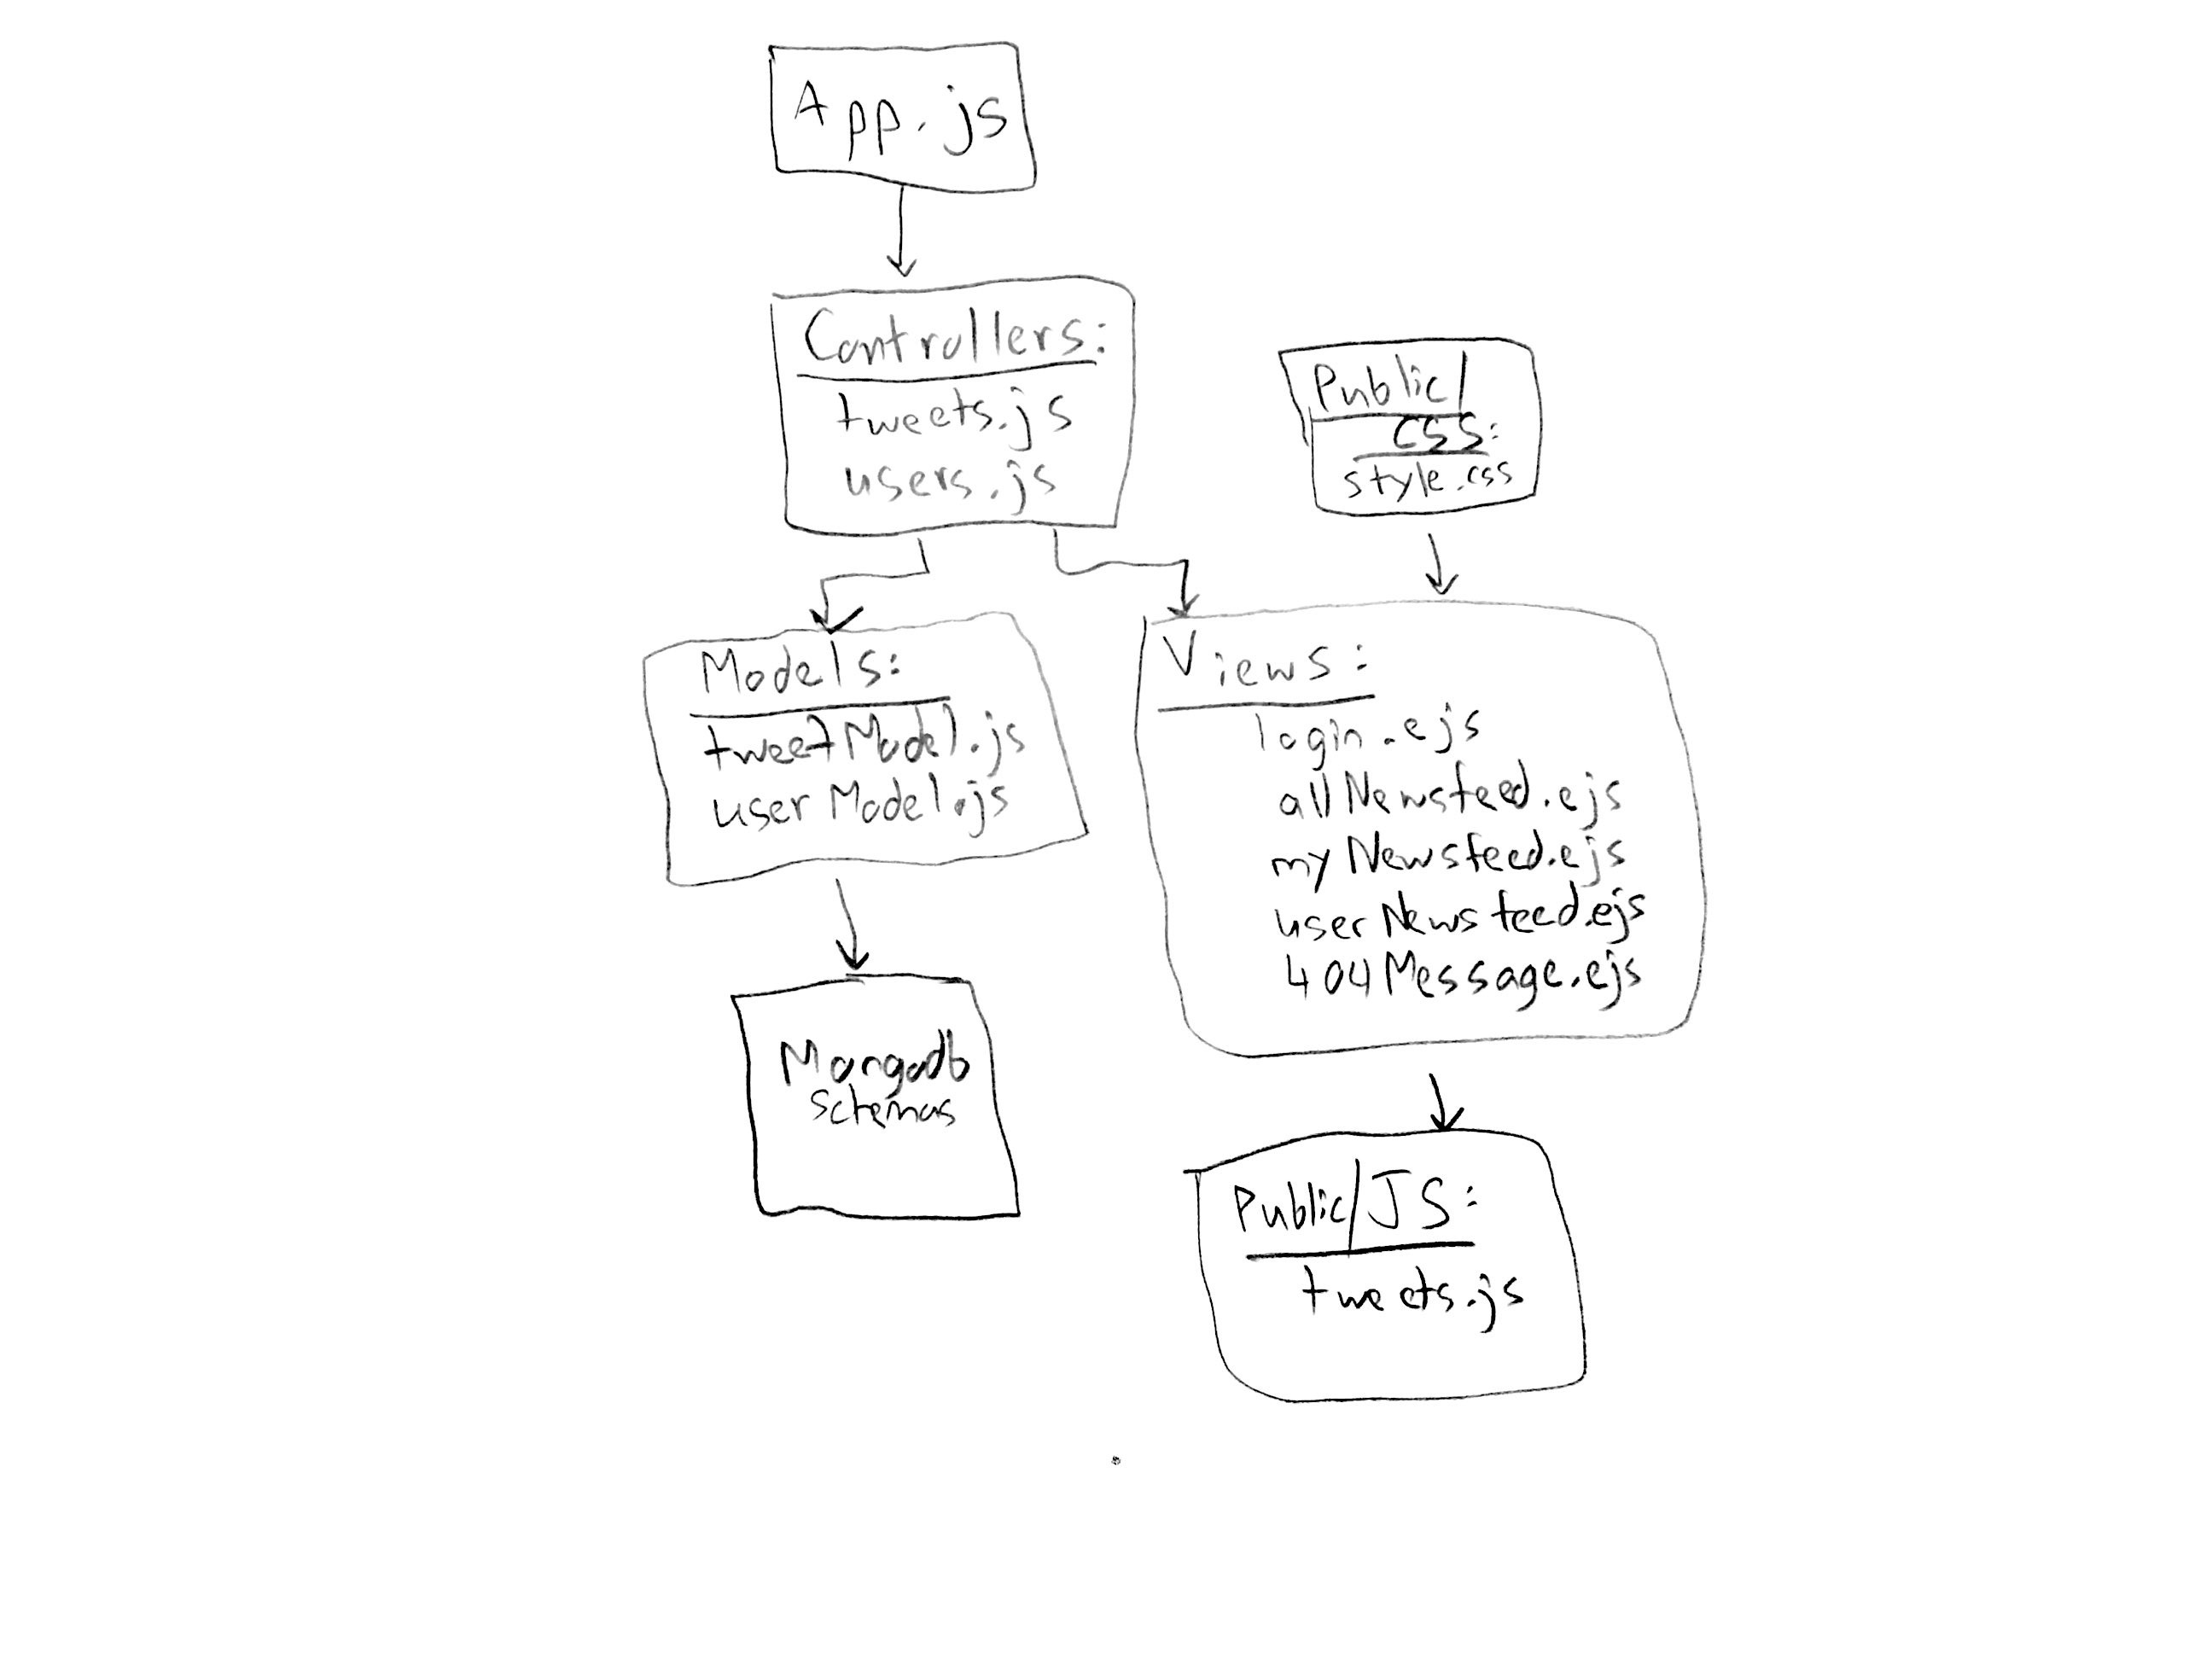 App.js
Controllers:
tweets.js
users.js
Public/
CSS:
style.css
Models:
tweetModel.js
userModel.js
Views:
login.ejs
allNewsfeed.ejs
myNewsfeed.ejs
userNewsfeed.ejs
404Message.ejs
Mongodb
schemas
Public/JS:
tweets.js